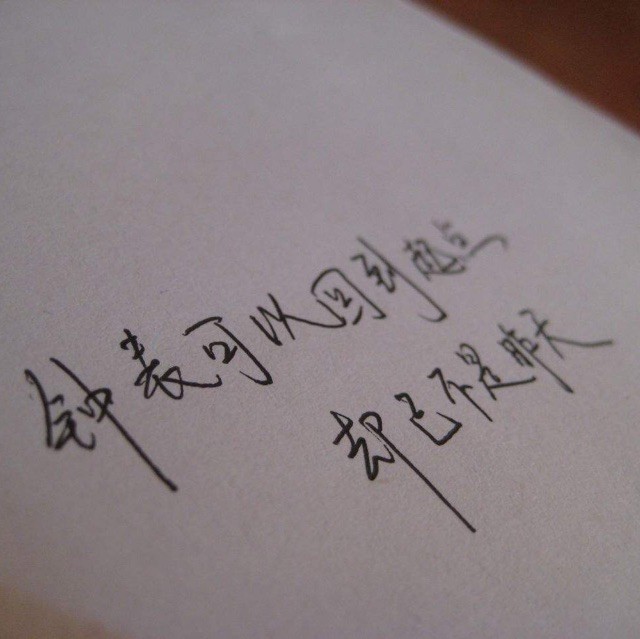 钟表可以回到起点
却已不是昨天